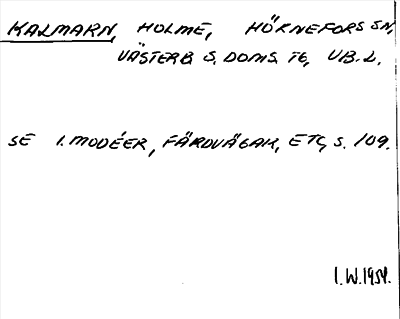 KALMARN, HOLME, HÖRNEFORS SN,
VÄSTERB. S. DOMS. TG, VB. L.
SE I. MODÉER, FÄRDVÄGAR, ETC, S. 109.
I.W.1954.